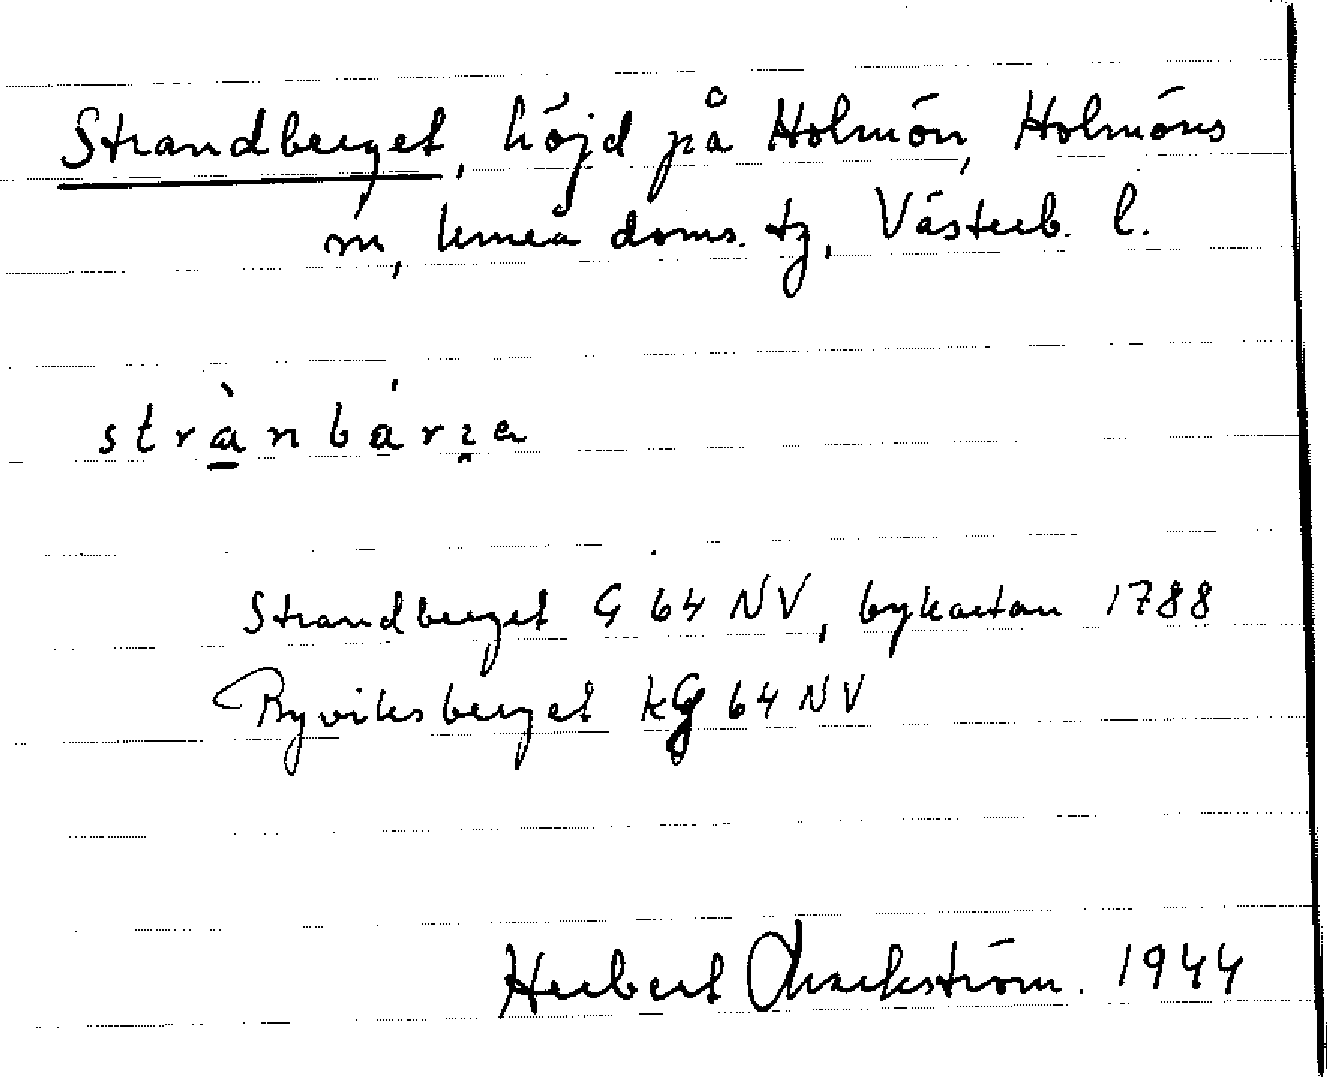 Strandberget, höjd på Holmön, Holmöns
sn, Umeå doms. tg, Västerb. l.
strànbárʒa
Strandberget G 64 NV, bykartan 1788
Ryviksberget kG 64 NV
Herbert 1944